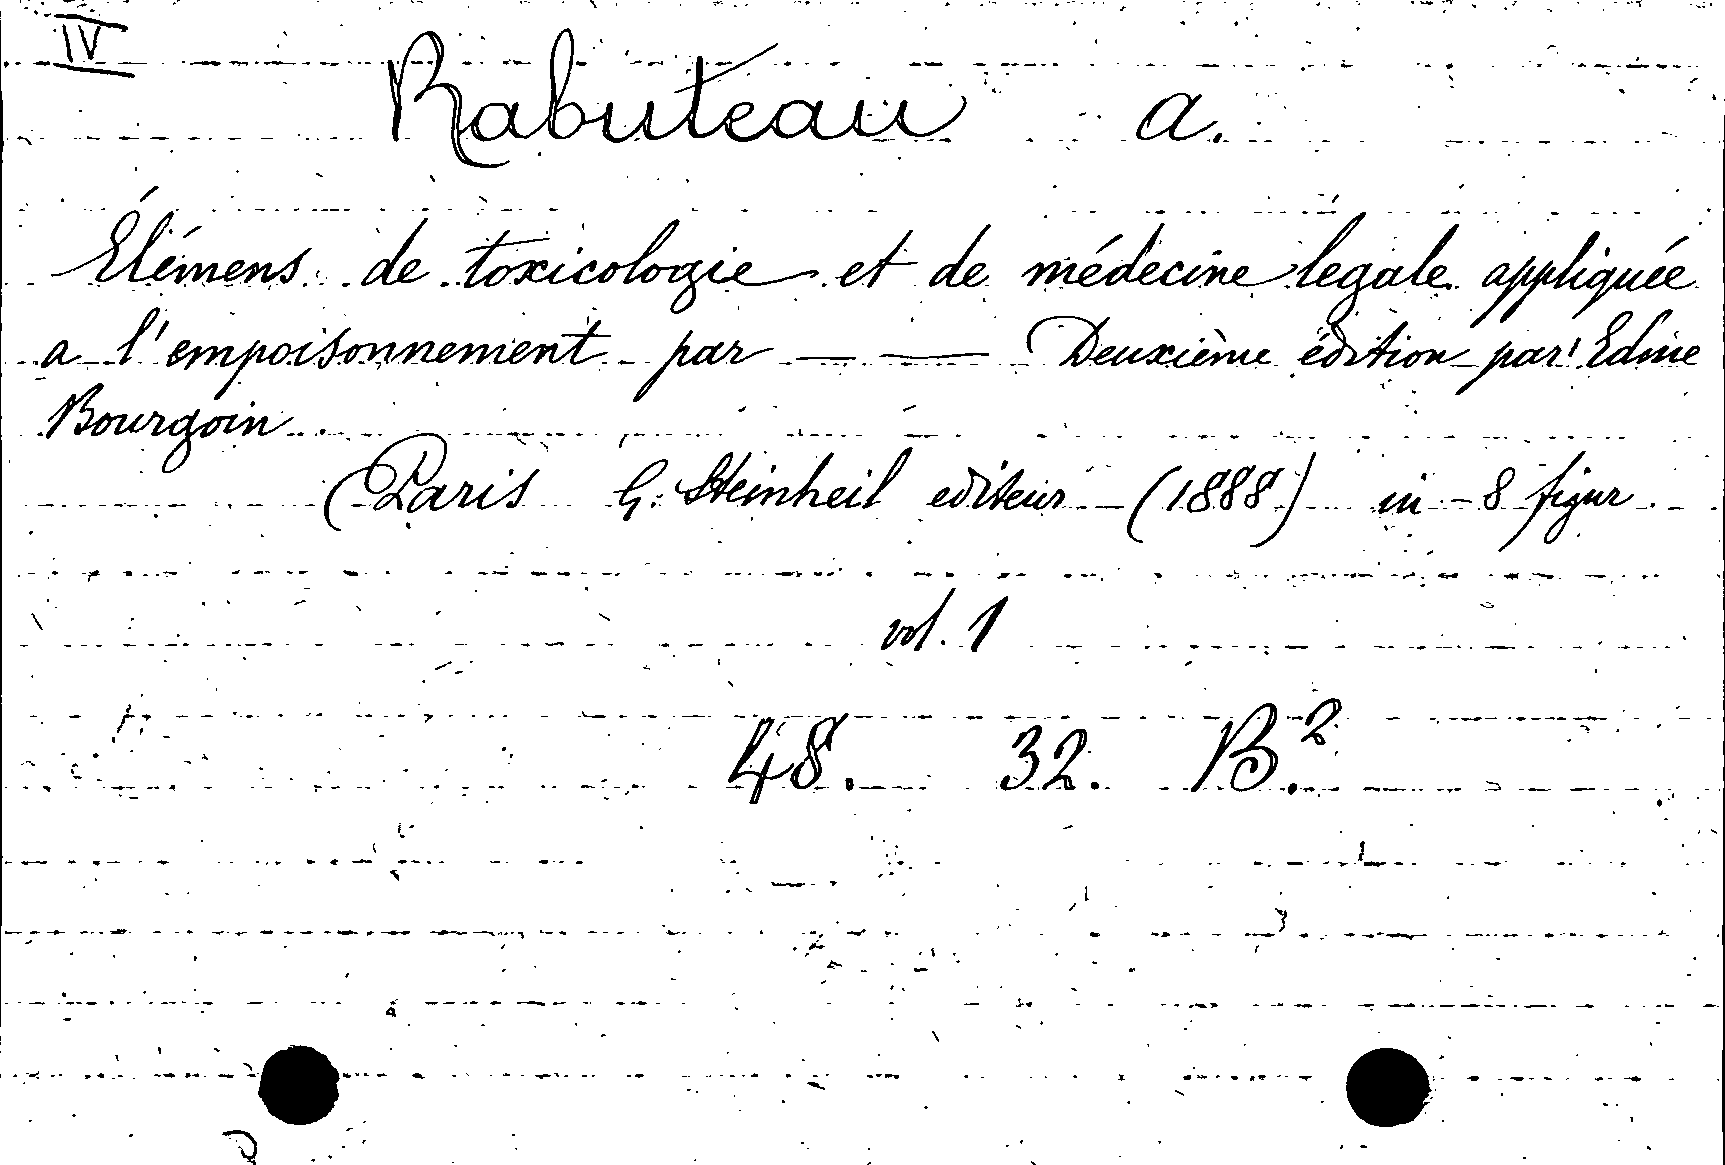 IV
Rabuteau a.
Élémens de toxicologie et de médecine legale appliquée
a l'empoisonnement par — — Deuxième édition par Edme
Bourgoin
(Paris G. Steinheil editeur (1888) in-8 figur
vol. 1
48. 32. B.²